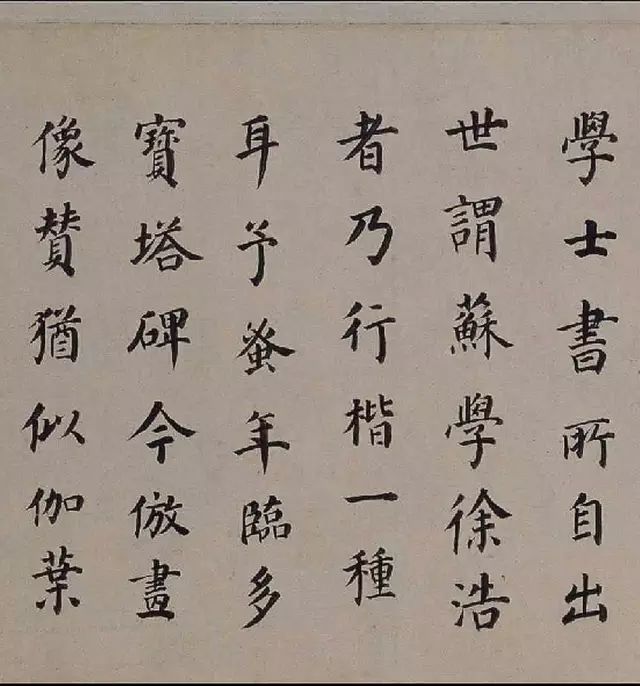 學士書所自出
世謂蘇學徐浩
者乃行楷一種
耳予蚤年臨多
寶塔碑今倣畫
像贊猶似伽葉